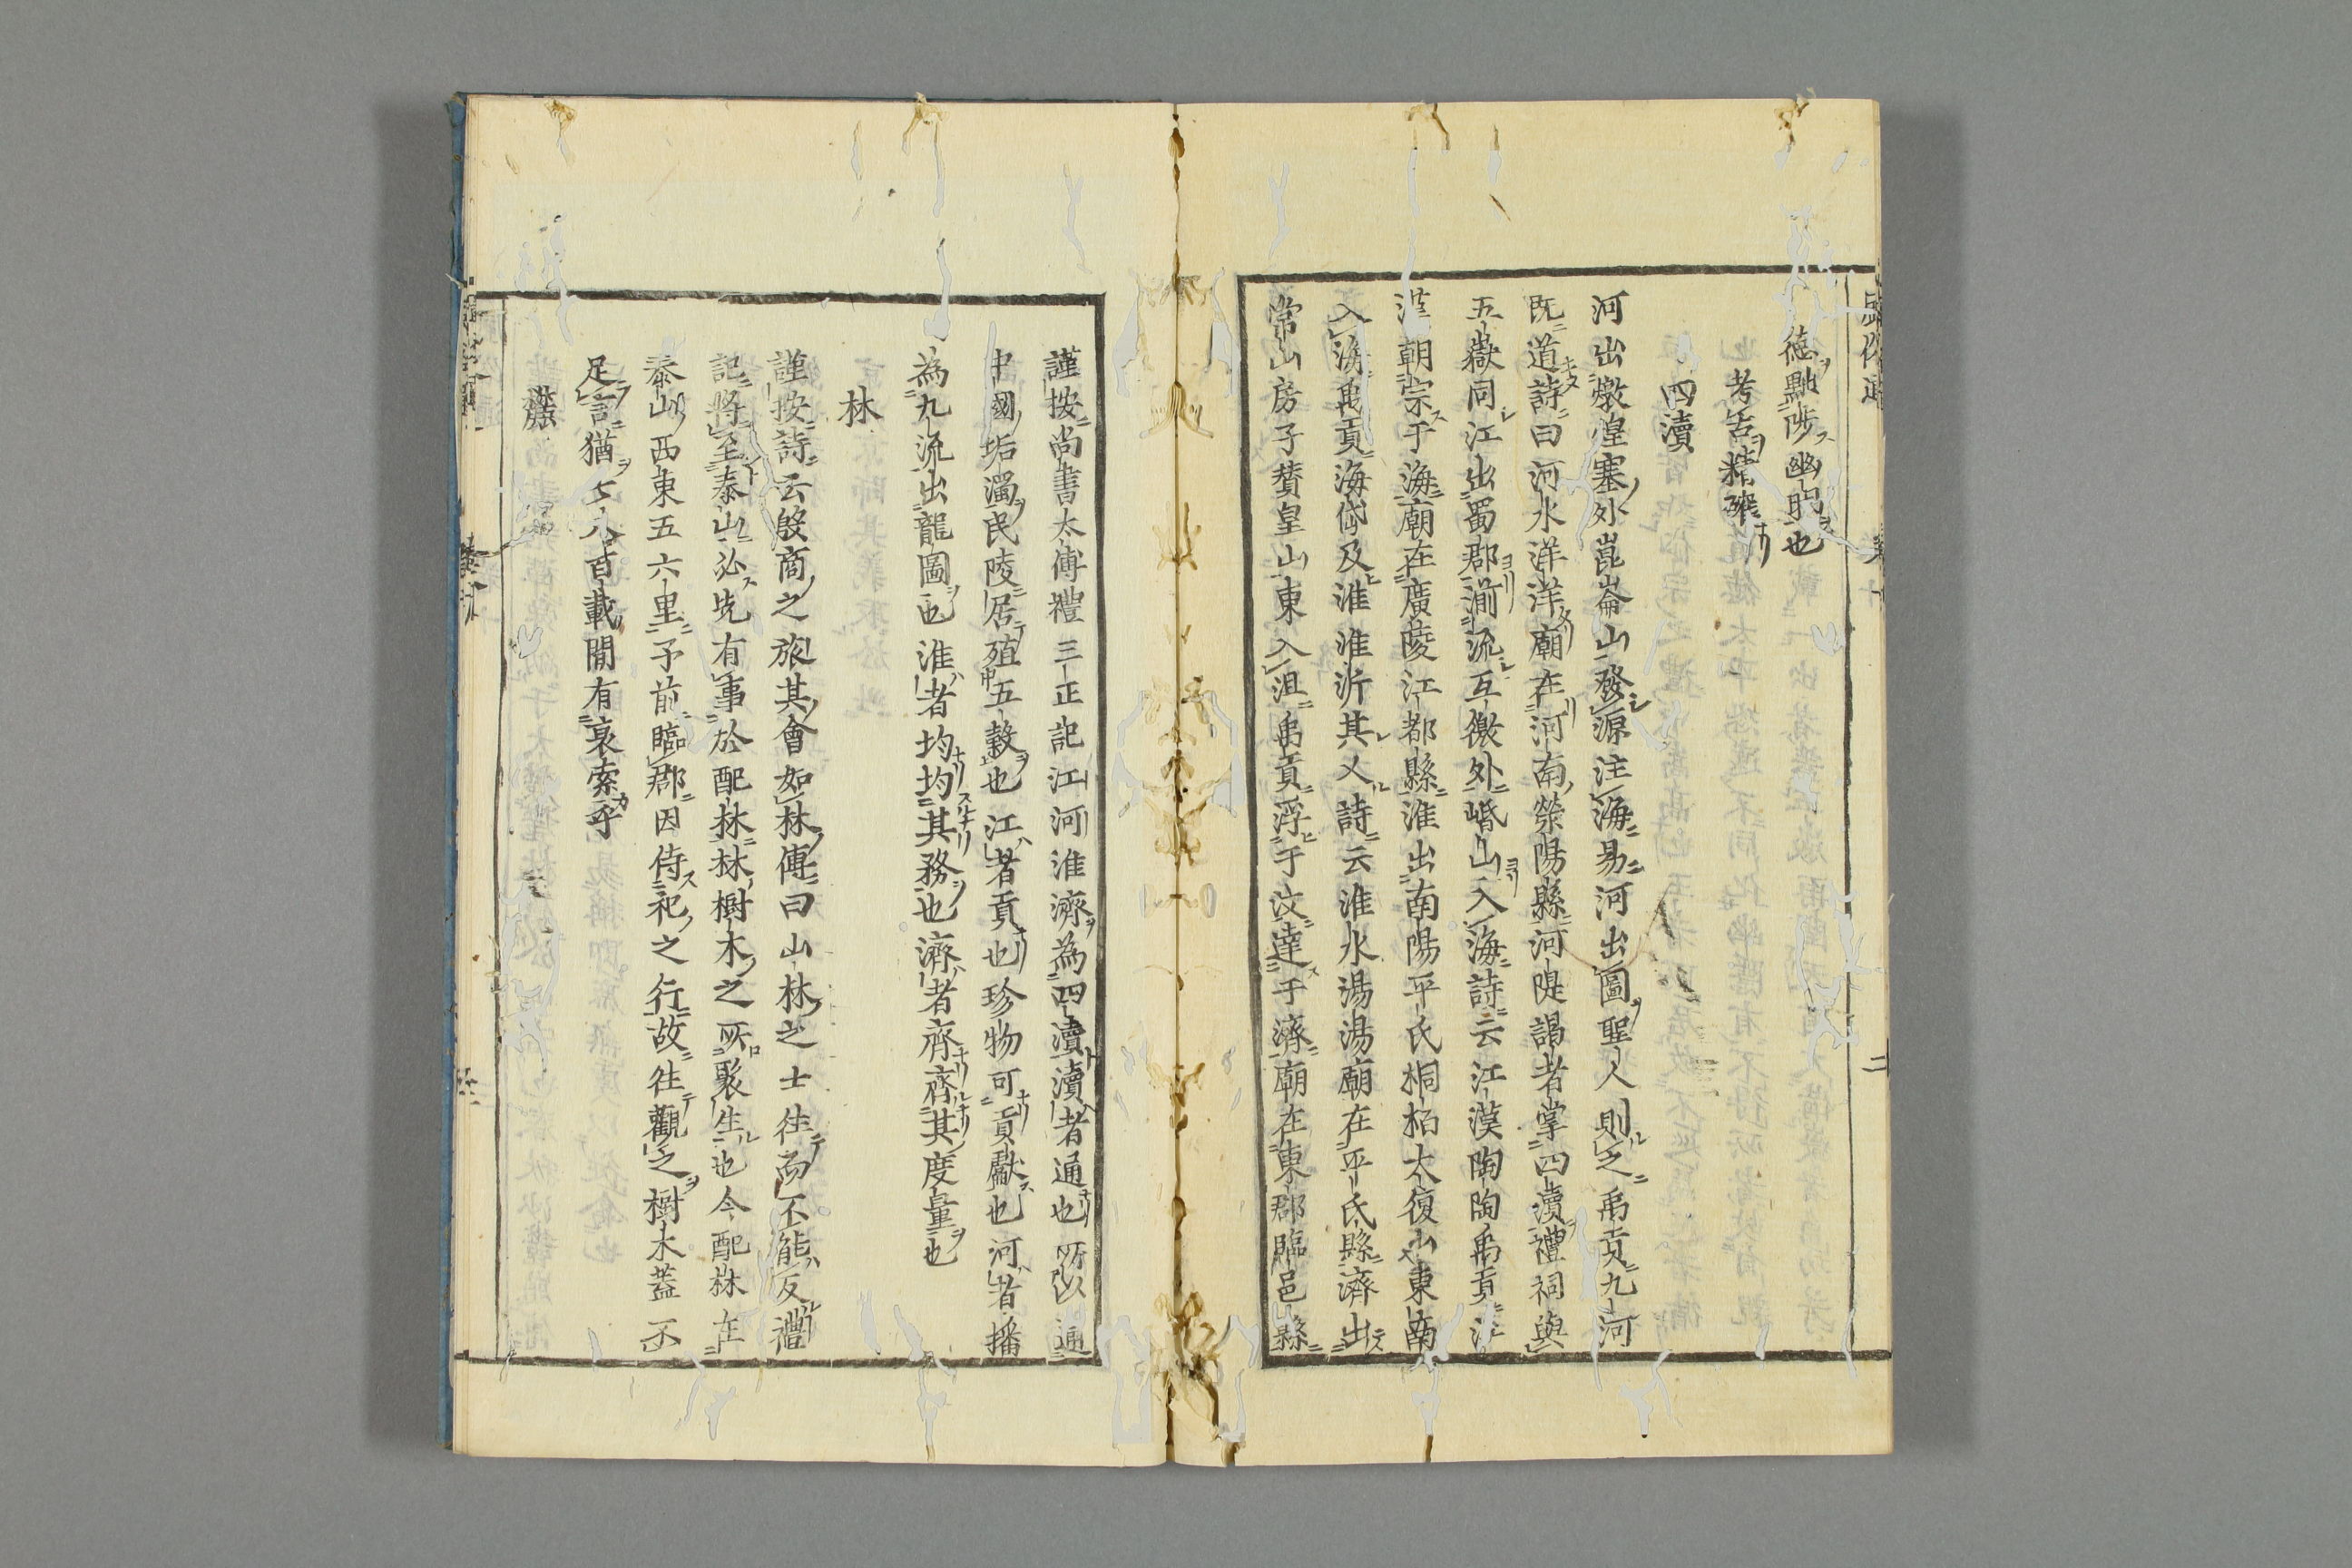 德黜陟幽明也
考舌精確
四瀆
河出燉煌塞外崑崙山發源注海易河出圖聖人則之禹貢九河
既道詩曰河水洋洋廟在河南滎陽縣河隄謁者掌四瀆禮祠與
五嶽同江出蜀郡湔流互徼外㟭山入海詩云江漢陶陶禹貢江
漢朝宗于海廟在廣陵江都縣淮出南陽平氏桐栢大復山東南
入海禹貢海岱及淮淮沂其乂詩云淮水湯湯廟在平氏縣濟出
常山房子賛皇山東入沮禹貢浮于汶達于濟廟在東郡臨邑縣
謹按尚書太傳禮三正記江河淮濟為四瀆瀆者通也所以通
中國垢濁民陵居殖五穀也江者貢也珍物可貢獻也河者播
為九流出龍圖也淮者均均其務也濟者齊齊其度量也
林
謹按詩云殷商之旅其會如林傳曰山林之士徃而不能反禮
記將至泰山必先有事於配林林樹木之所聚生也今配林在
泰山西東五六里予前臨郡因侍祀之行故徃觀之樹木蓋不
足言猶七八百載間有衰索乎